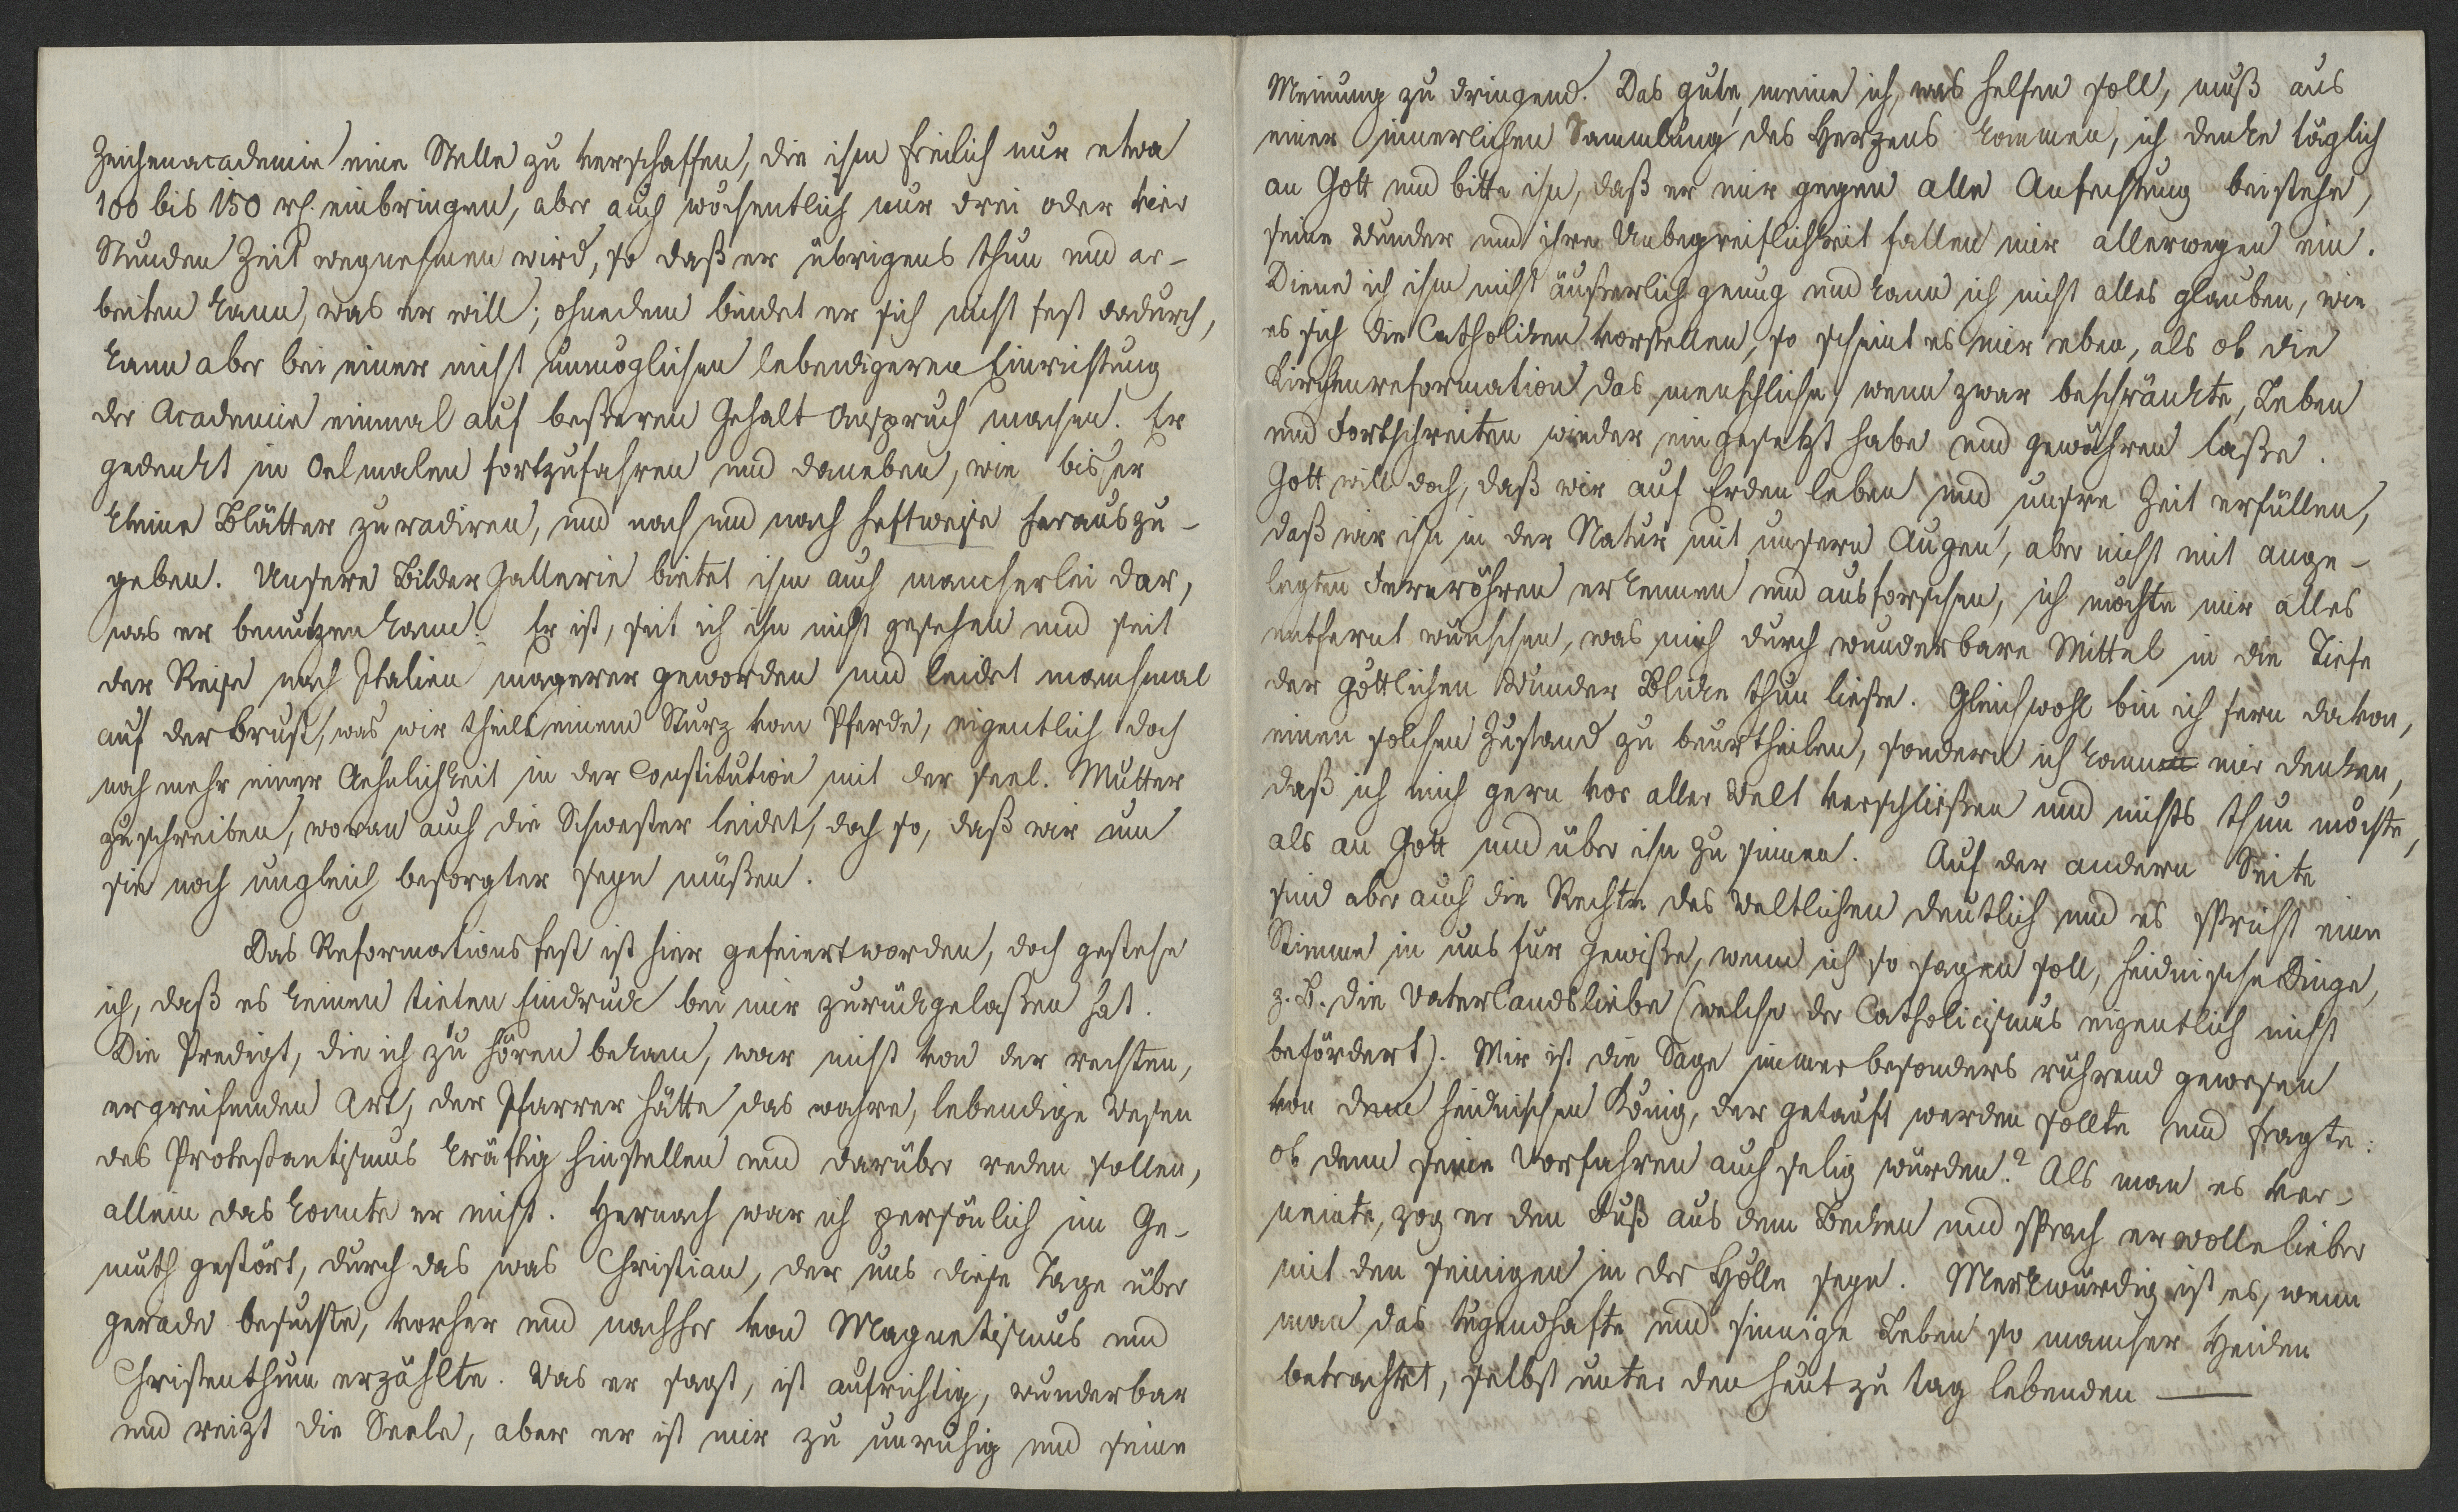 Zeichenacademie eine Stelle zu verschaffen, die ihm freilich nur etwa
100 bis 150 rh. einbringen, aber auch wöchentlich nur drei oder vier
Stunden Zeit wegnehmen wird, so daß er übrigens thun und ar-
beiten kann, was er will; ohnedem bindet er sich nicht fest dadurch,
kann aber bei einer nicht unmöglichen lebendigeren Einrichtung
der Academie einmal auf beßeren Gehalt Anspruch machen. Er
gedenkt in Oelmalen fortzufahren und daneben, wie bisher
kleine Blätter zu radiren, und nach und nach heftweise herauszu-
geben. Unsere Bilder Gallerie bietet ihm auch mancherlei dar,
was er benutzen kann. Er ist, seit ich ihn nicht gesehen und seit
der Reise nach Italien magerer geworden und leidet manchmal
auf der Brust, was wir theils einem Sturz vom Pferde, eigentlich doch
noch mehr einer Aehnlichkeit in der Constitution mit der seel. Mutter
zuschreiben, woran auch die Schwester leidet, doch so, daß wir um
sie noch ungleich besorgter seyn müßen.
Das Reformationsfest ist hier gefeiert worden, doch gestehe
ich, daß es keinen tiefen Eindruck bei mir zurückgelaßen hat.
Die Predigt, die ich zu hören bekam, war nicht von der rechten,
ergreifenden Art, der Pfarrer hätte das wahre, lebendige Wesen
des Protestantismus kräftig hinstellen und darüber reden sollen,
allein das konnte er nicht. Hernach war ich persönlich im Ge-
müth gestört, durch das was Christian, der uns diese Tage über
gerade besuchte, vorher und nachher von Magnetismus und
Christenthum erzählte. Was er sagt, ist aufrichtig, wunderbar
und reizt die Seele, aber er ist mir zu unruhig und seine
Meinung zu dringend. Das gute, meine ich, was helfen soll, muß aus
einer innerlichen Sammlung des Herzens kommen, ich denke täglich
an Gott und bitte ihn, daß er mir gegen alle Anfechtung beistehe,
seine Wunder und ihre Unbegreiflichkeit fallen mir allerwegen ein.
Diene ich ihm nicht äußerlich genug und kann ich nicht alles glauben, wie
es sich die Catholiken vorstellen, so scheint es mir eben, als ob die
Kirchenreformation das menschliche, wenn zwar beschränkte, Leben
und Fortschreiten wieder eingesetzt habe und gewähren laße.
Gott will doch, daß wir auf Erden leben und unsre Zeit erfüllen,
daß wir ihn in der Natur mit unsern Augen, aber nicht mit ange-
legten Fernröhren erkennen und ausforschen, ich möchte mir alles
entfernt wünschen, was mich durch wunderbare Mittel in die Tiefe
der göttlichen Wunder Blicke thun ließe. Gleichwohl bin ich fern davon,
einen solchen Zustand zu beurtheilen, sondern ich kann mir denken,
daß ich mich gern vor aller Welt verschließen und nichts thun möchte,
als an Gott und über ihn zu sinnen. Auf der andern Seite
sind aber auch die Rechte des Weltlichen deutlich und es spricht eine
Stimme in uns für gewiße, wenn ich so sagen soll, heidnische Dinge,
z. B. die Vaterlandsliebe (welche der Catholicismus eigentlich nicht
befördert). Mir ist die Sage immer besonders rührend gewesen
von dem heidnischen König, der getauft werden sollte und fragte:
ob denn seine Vorfahren auch selig würden? Als man es ver-
neinte, zog er den Fuß aus dem Becken und sprach er wolle lieber
mit den seinigen in der Hölle seyn. Merkwürdig ist es, wenn
man das tugendhafte und sinnige Leben so mancher Heiden
betrachtet, selbst unter den heut zu tag lebenden —